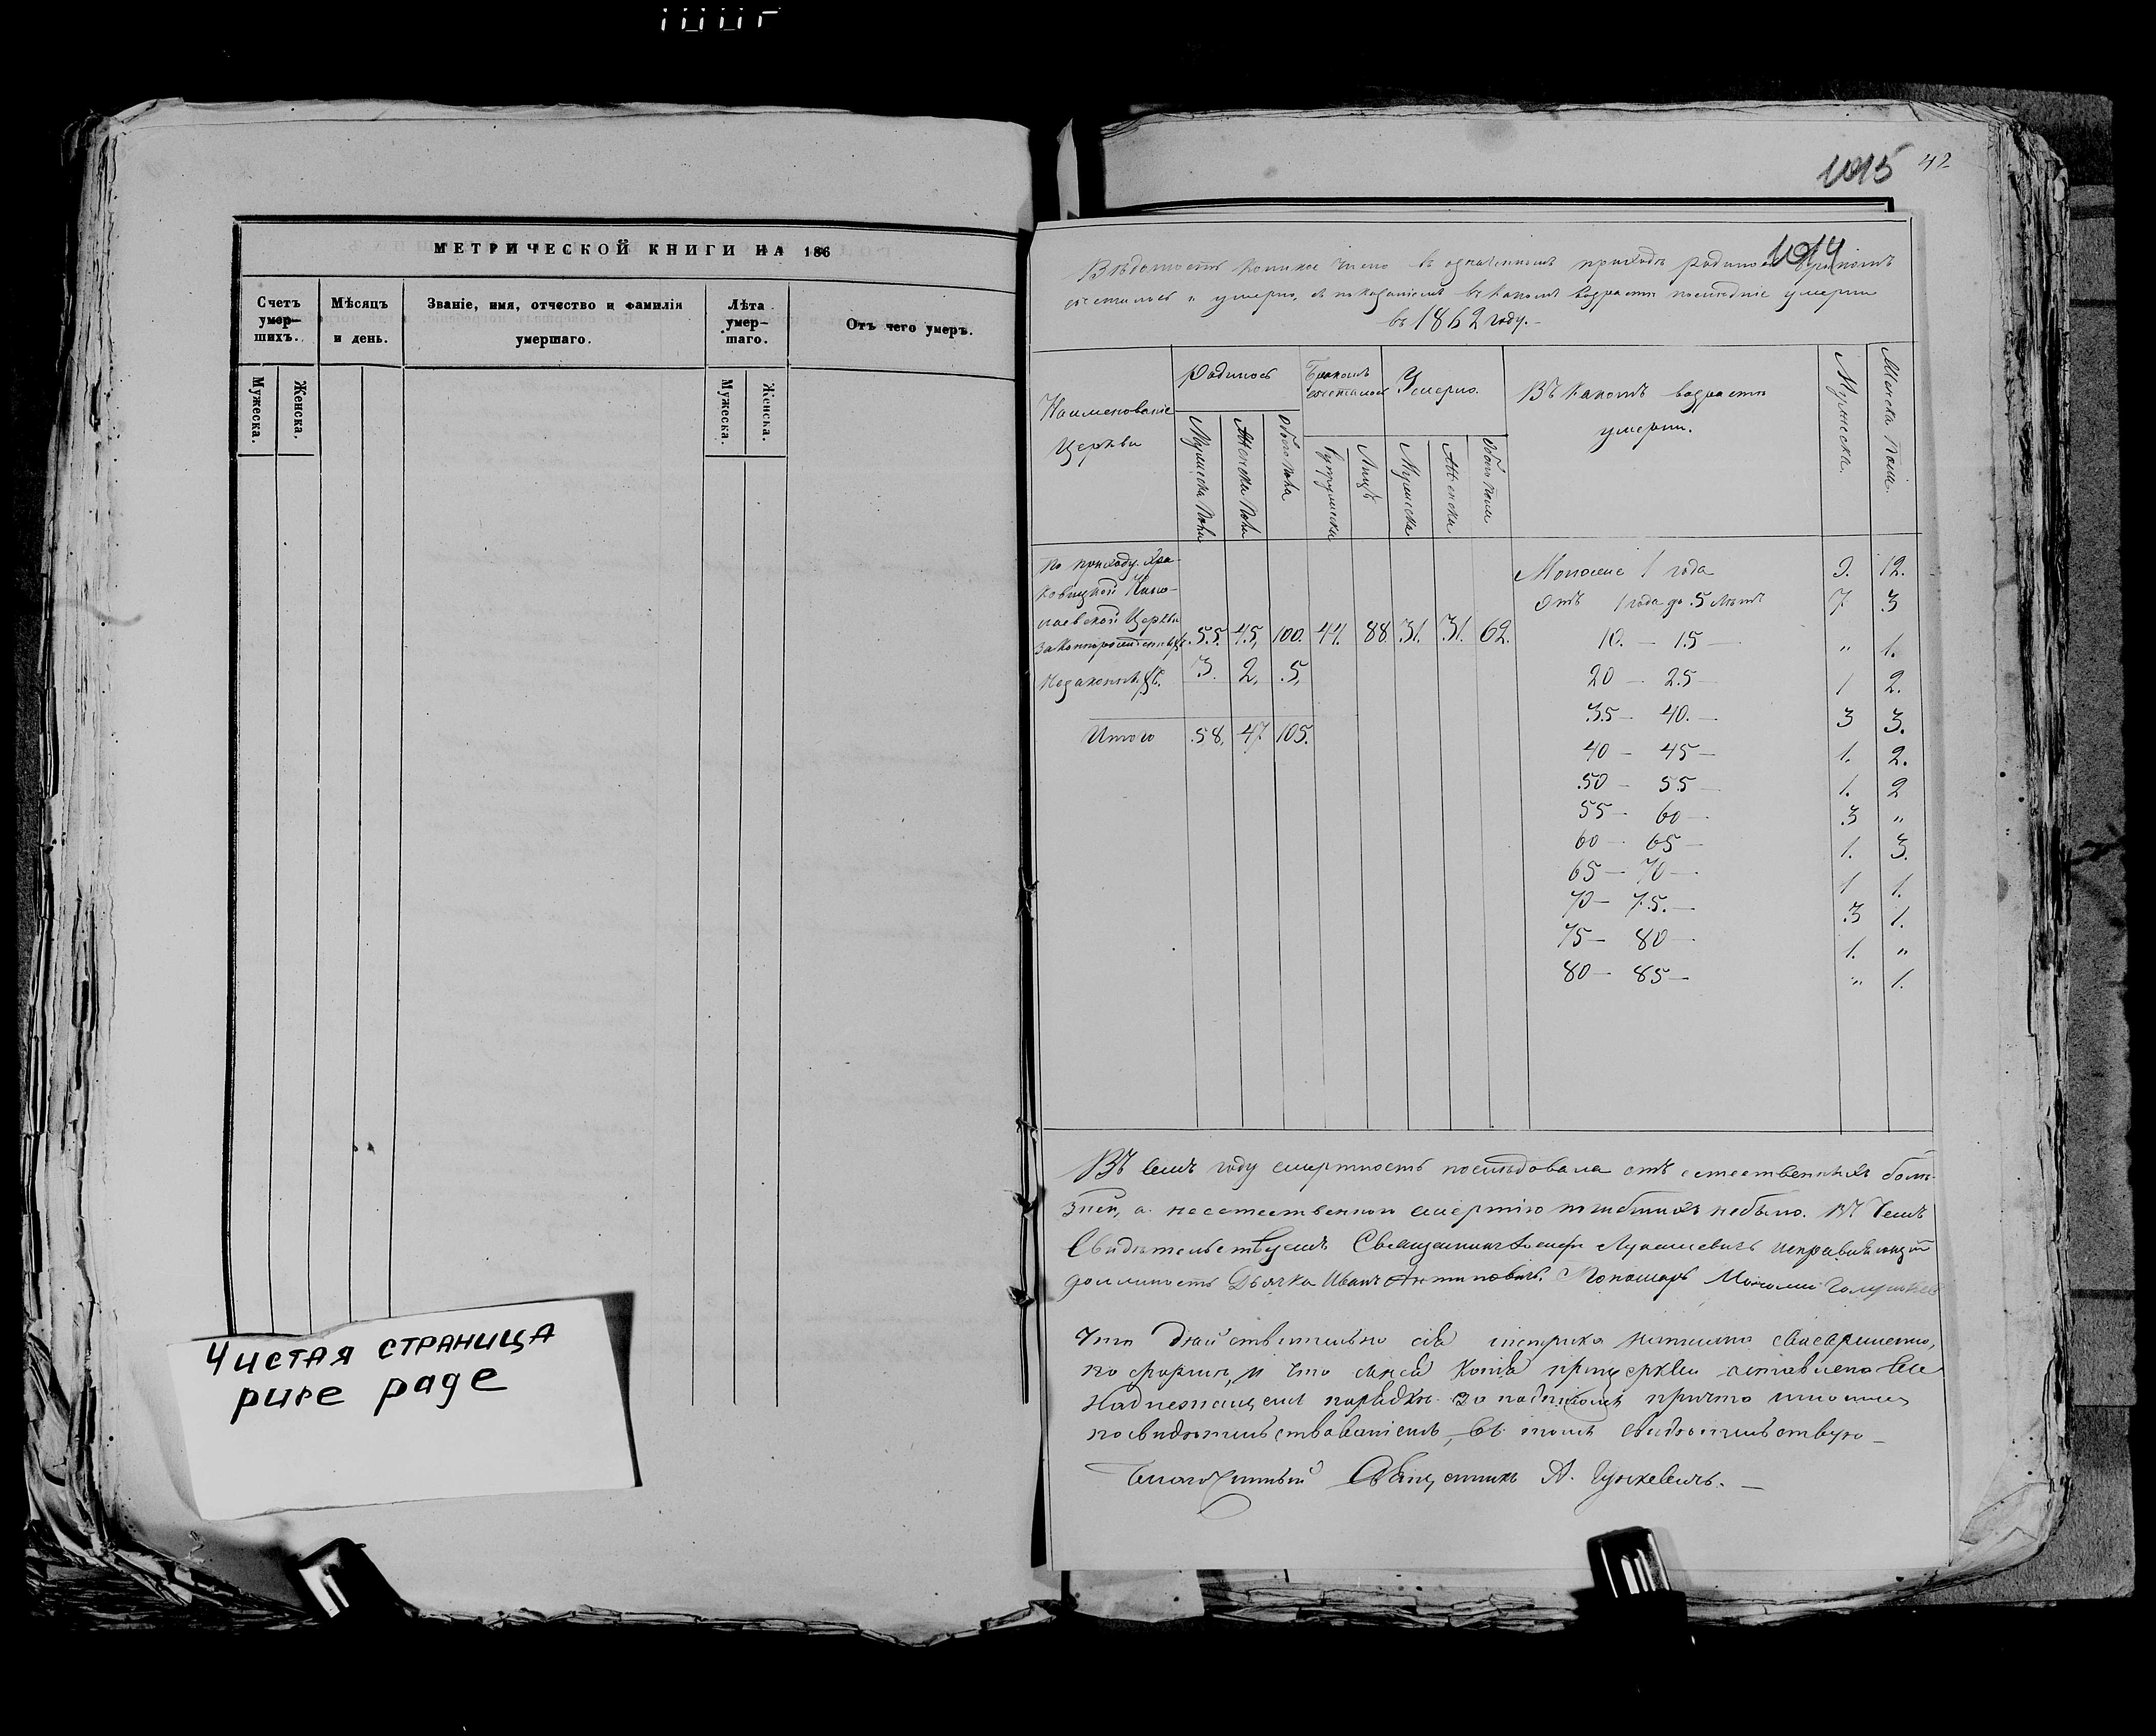 МЕТРИЧЕСКОЙ КНИГИ НА 186
Счетъ умер-шихъ.
Мѣсяцъ и день.
Званіе, имя, отчество и фамилія умершаго.
Лѣта умер-шаго.
Отъ чего умеръ.
Мужеска.
Женска.
Мужеска.
Женска.
Чистая страница
pure page
1015 42
1014
Вѣдомость колико число въ означенномъ приходѣ родилось бракомъ
сочеталось и умерло, съ показаніемъ въ какомъ возрастѣ послѣдніе умерли
въ 1862 году.
Наименованіе Церкви
Родилось
Бракомъ сочеталось
Умерло.
Въ какомъ возрастѣ умерли.
Мужеска.
Женска пола.
Мужеска пола
Женска пола
Обоего пола
Супружества
Лицъ
Мужеска
Женска
Обоего пола
По приходу
Церкви
55 45, 100. 44. 88 31. 31. 62.
3. 2, 5,
Итого 58, 47 105.
Моложе 1 года 9. 12.
Отъ 1 года до 5 лѣтъ 7 3
10. — 15 — " 1.
20 — 25 — 1 2.
35 — 40. — 3 3.
40 — 45 — 1. 2.
50 — 55 — 1. 2
55 — 60 — 3 "
60 — 65 — 1. 3.
65 — 70 — 1 1.
70 — 75. — 3 1.
75 — 80 — 1. "
80 — 85 — " 1.
Въ семъ году смертность послѣдовала отъ естественныхъ болѣ-
зней, а неестественною смертію погибшихъ небыло. Въ чемъ
Свидѣтельствуемъ Священникъ Іосифъ Лукашевичъ исправляющій
должность Дьячка Иванъ Антиповичъ. Пономарь
Что дѣйствительно сія метрика писана своевременно,
по формѣ, и что съ неи копія при церкви оставлена
порядкѣ за подписомъ причта
посвидѣтельствованіемъ, въ томъ свидѣтельствую —
Благочинный Священникъ А.